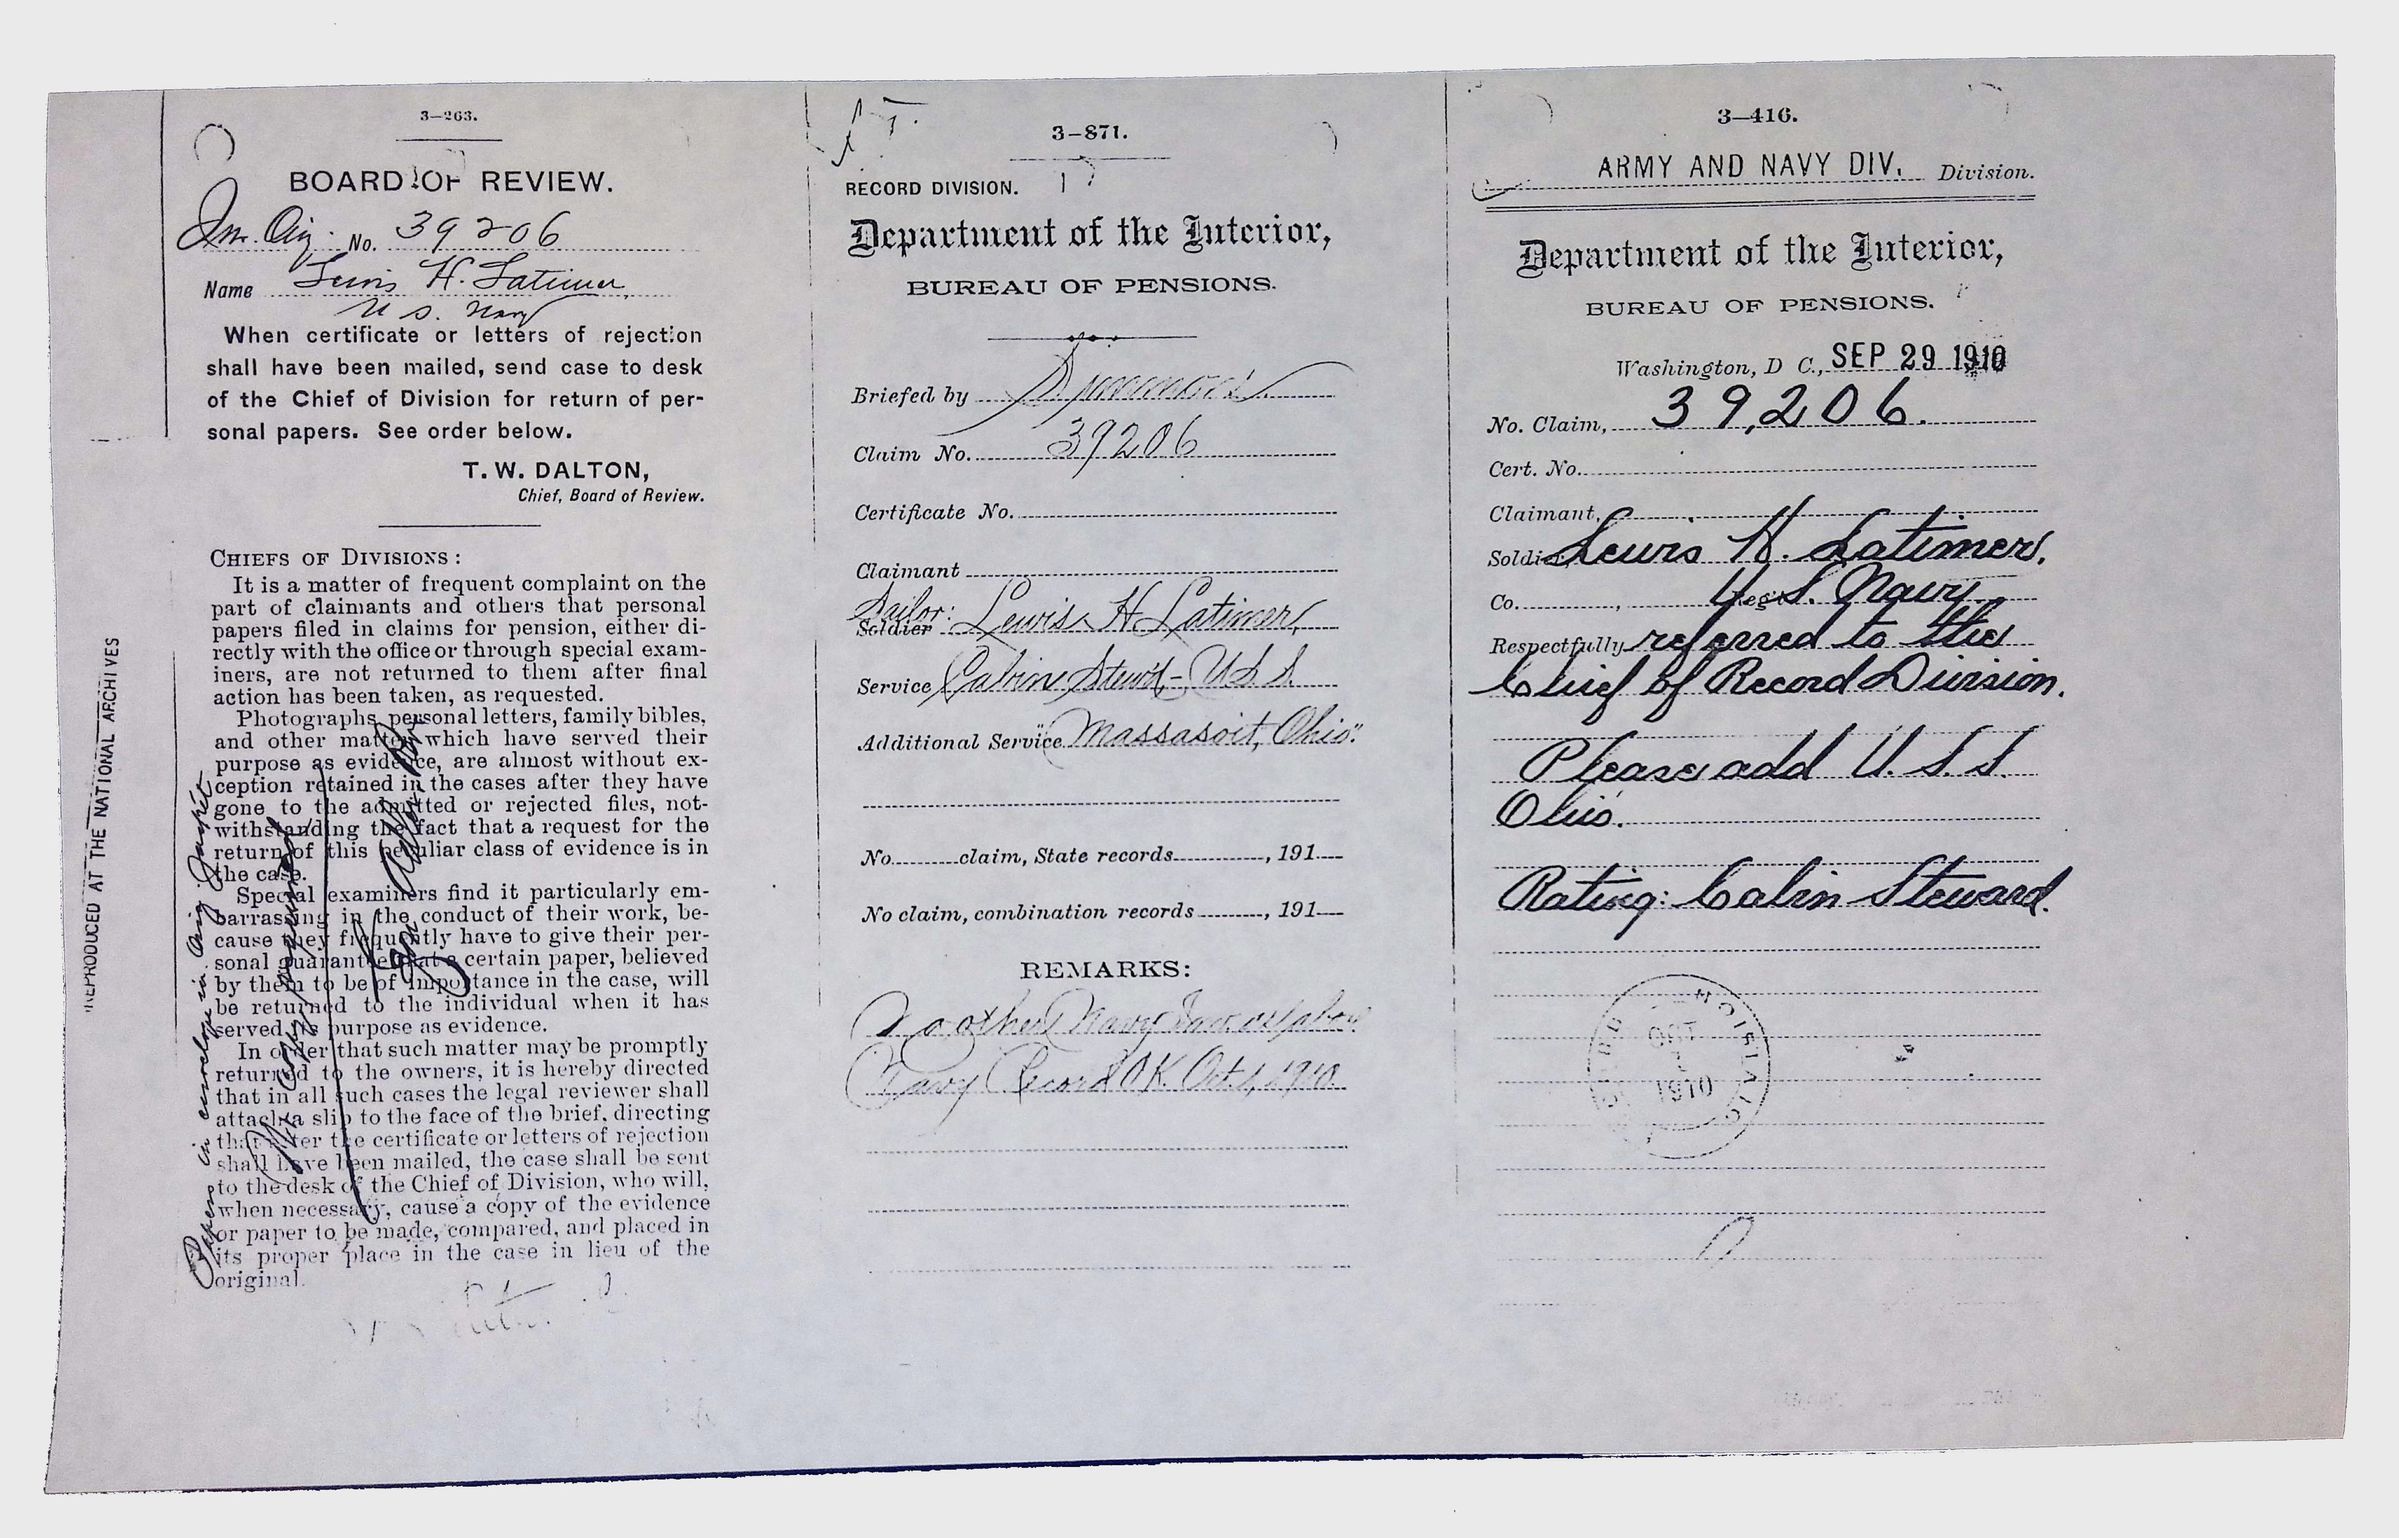 "REPRODUCED AT THE NATIONAL ARCHIVES
3-263.
BOARD OF REVIEW.
No. 39206
Name Lewis H. Latimer,
U S. Navy
When certificate or letters of rejection
shall have been mailed, send case to desk
of the Chief of Division for return of per-
sonal papers. See order below.
T. W. DALTON,
Chief, Board of Review.
CHIEFS OF DIVISIONS:
It is a matter of frequent complaint on the
part of claimants and others that personal
papers filed in claims for pension, either di-
rectly with the office or through special exam-
iners, are not returned to them after final
action has been taken, as requested.
Photographs, personal letters, family bibles,
and other matter which have served their
purpose as evidence, are almost without ex-
ception retained in the cases after they have
gone to the admitted or rejected files, not-
withstanding the fact that a request for the
return of this peculiar class of evidence is in
the case.
Special examiners find it particularly em-
barrassing in the conduct of their work, be-
cause they frequently have to give their per-
sonal guarantee that a certain paper, believed
by them to be of importance in the case, will
be returned to the individual when it has
served its purpose as evidence.
In order that such matter may be promptly
returned to the owners, it is hereby directed
that in all such cases the legal reviewer shall
attach a slip to the face of the brief, directing
that after the certificate or letters of rejection
shall have been mailed, the case shall be sent
to the desk of the Chief of Division, who will,
when necessary, cause a copy of the evidence
or paper to be made, compared, and placed in
its proper place in the case in lieu of the
original.
Papers in envelope in
3-871.
RECORD DIVISION.
Department of the Interior,
BUREAU OF PENSIONS.
Briefed by
Claim No. 39206
Certificate No.
Claimant
Sailor:
Soldier Lewis H Latimer,
Service Cabin Stew'd - U.S.S.
Additional Service "Massasoit, Ohio".
No. claim, State records , 191
No claim, combination records , 191
REMARKS:
No other Navy
Navy Record O.K. Oct. 1, 1910.
3-416.
ARMY AND NAVY DIV. Division.
Department of the Interior,
BUREAU OF PENSIONS.
Washington, D C., SEP 29 1910
No. Claim, 39,206.
Cert. No.
Claimant,
Soldier, Lewis H. Latimer.
Co. , Reg't U.S. Navy
Respectfully referred to the
Chief of Record Division.
Please add U.S.S.
Ohio.
Rating: Cabin Steward.
OCT
1910